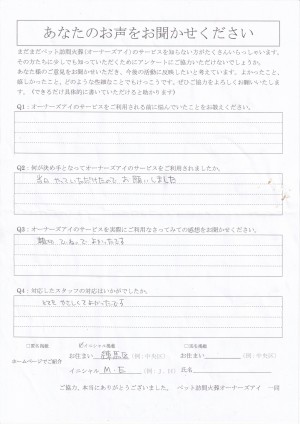 あなたのお声をお聞かせください
まだまだペット訪問火葬(オーナーズアイ)のサービスを知らない方がたくさんいらっしゃいます。
その方たちに少しでも知っていただくためにアンケートにご協力いただけないでしょうか。
あなた様のご意見をお聞かせいただき、今後の活動に反映したいと考えています。よかったこと、
嬉しかったこと、どのような些細なことでもけっこうです。ぜひご協力をよろしくお願いいたします。
(できるだけ具体的に書いていただけると助かります)
Q1:オーナーズアイのサービスをご利用される前に悩んでいたことをお教えください。
Q2:何が決め手となってオーナーズアイのサービスをご利用されましたか。
やっていただけたので お願いしました
Q3:オーナーズアイのサービスを実際にご利用なさってみての感想をお聞かせください。
親切 でよかったです
Q4:対応したスタッフの対応はいかがでしたか。
とても やさしくてよかったです
イニシャル掲載
お住まい 練馬区 (例:中央区) お住まい (例:中央区)
ホームページでご紹介
イニシャル M・E (例:J.H) 氏名
ご協力、本当にありがとうございました。 ペット訪問火葬オーナーズアイ 一同